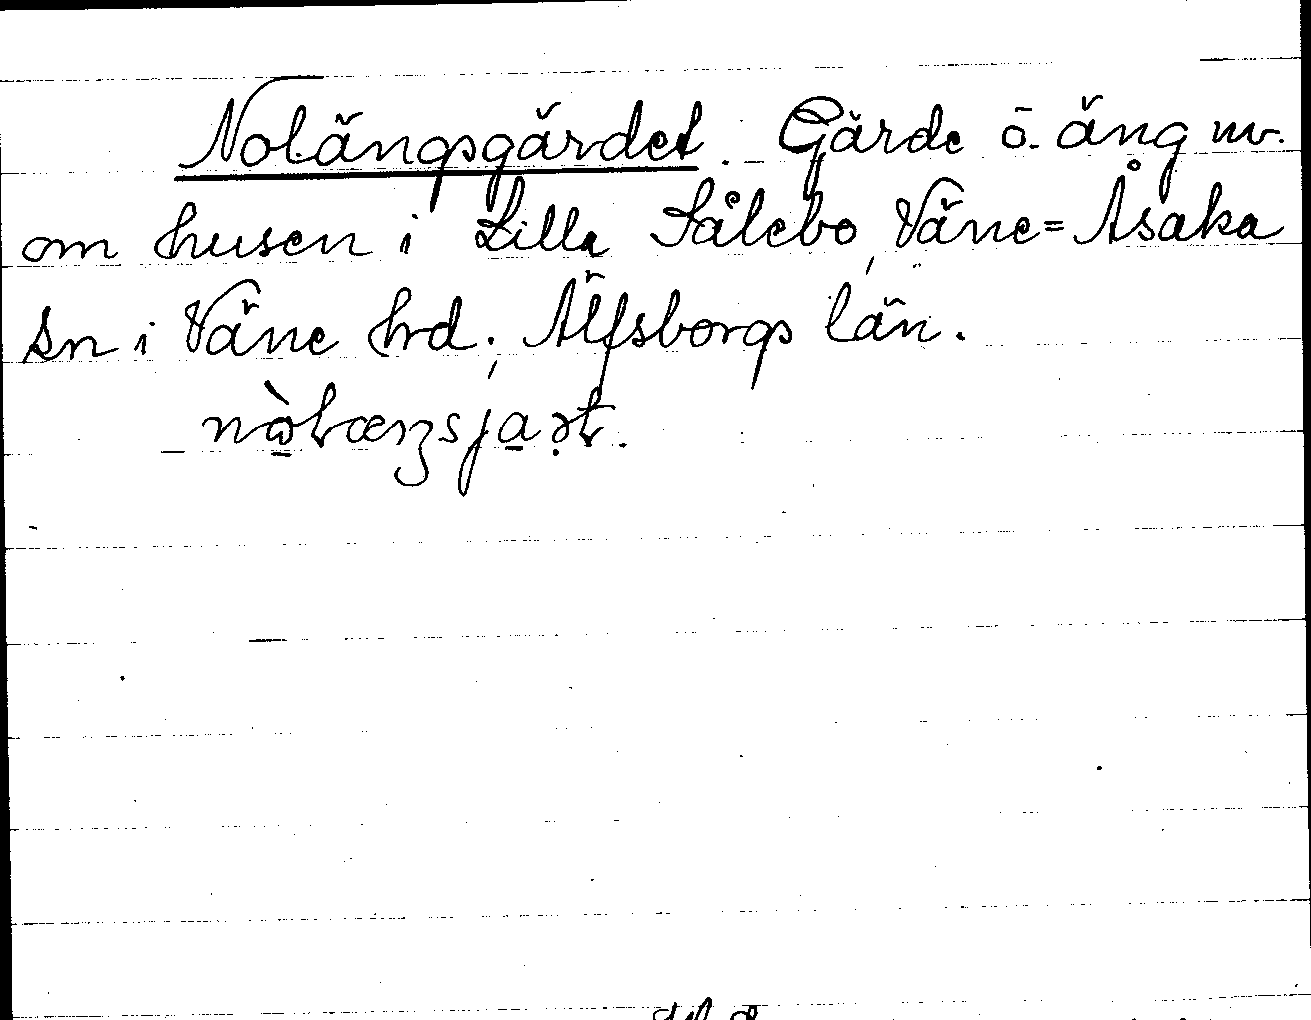 Nolängsgärdet. Gärde ö. äng nv.
om husen i Lilla Sålebo, Väne=Åsaka
sn i Väne hrd, Älfsborgs län.